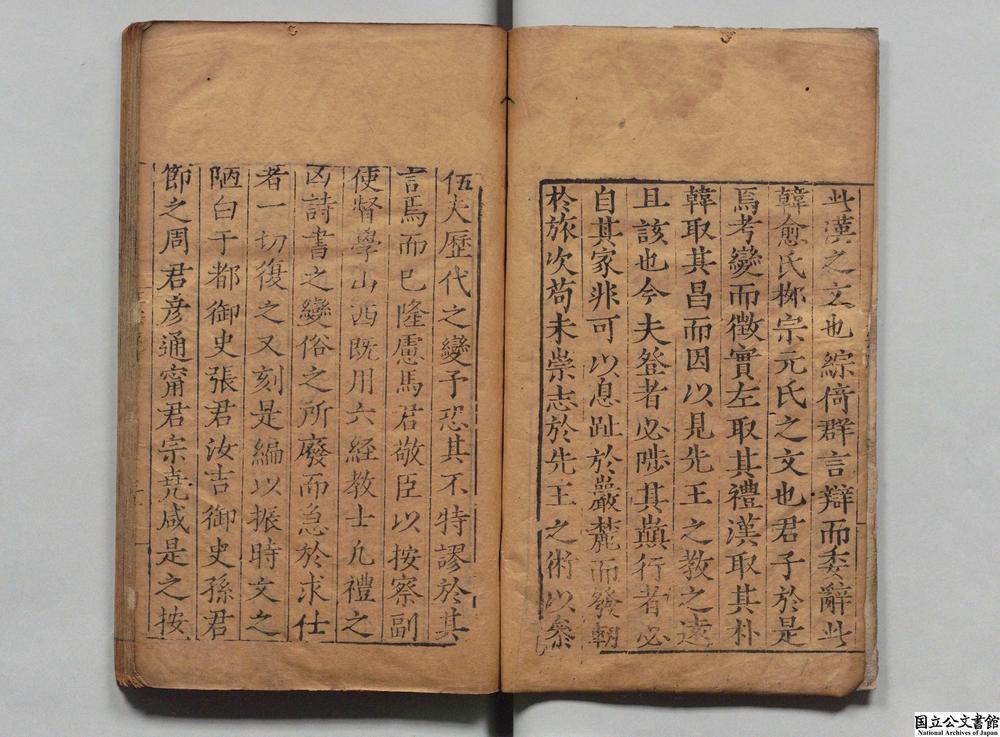 此漢之文也綜倚群言辯而委辭此
韓愈氏桺宗元氏之文也君子於是
焉考變而徵實左取其禮漢取其朴
韓取其昌而因以見先王之教之遠
且該也今夫登者必陟其巔行者必
自其家非可以息趾於巖麓而發軔
於旅次苟未崇志於先王之術以叅
伍夫歷代之變予恐其不特謬於其
言焉而已隆慮馬君敬臣以按察副
使督學山西既用六經教士凡禮之
凶詩書之變俗之所廢而急於求仕
者一切復之又刻是編以振時文之
陋白于都御史張君汝吉御史孫君
節之周君彦通甯君宗堯咸是之按
国立公文書館
National Archives of Japan